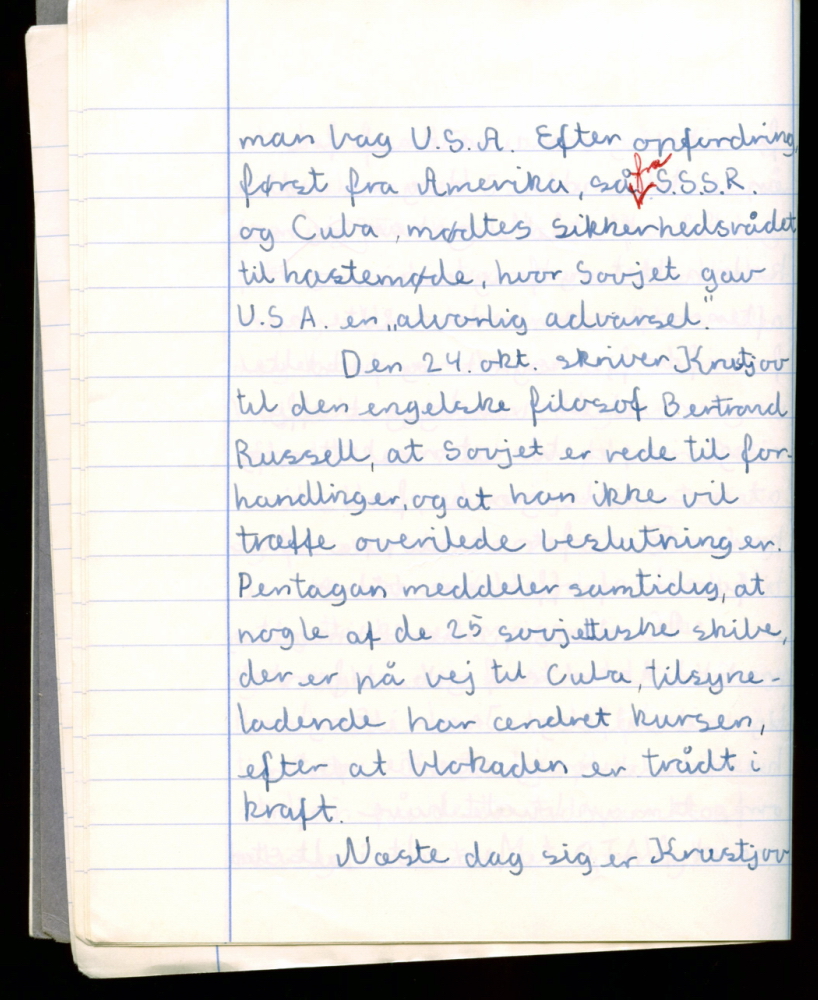 man bag U.S.A. Efter opfordring,
først fra Amerika, så fra S.S.S.R.
og Cuba, mødtes sikkerhedsrådet
til hastemøde, hvor Sovjet gav
U.S A. en „alvorlig advarsel."
Den 24. okt. skriver Krustjov
til den engelske filosof Bertrand
Russell, at Sovjet er rede til for-
handlinger, og at han ikke vil
træffe overilede beslutninger.
Pentagan meddeler samtidig, at
nogle af de 25 sovjettiske skibe,
der er på vej til Cuba, tilsyne-
ladende har ændret kursen,
efter at blokaden er trådt i
kraft.
Næste dag siger Krustjov